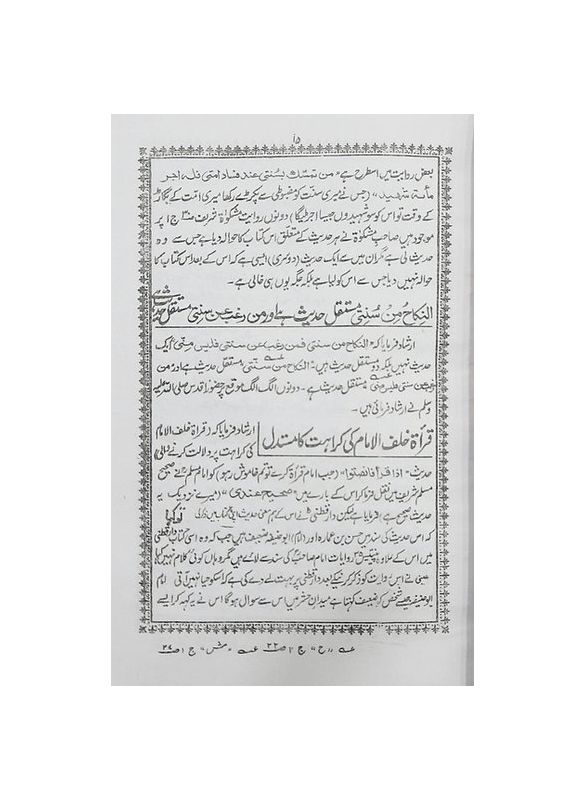 ۱۵
بعض روایت میں اسطرح ہے "من تمسک بسنتی عند فساد امتی فلہ اجر
مأۃ شھید" (جس نے میری سنت کو مضبوطی سے پکڑے رکھا میری امت کے بگاڑ
کے وقت تو اس کو سو شہیدوں جیسا اجر ملیگا) دونوں روایت مشکوٰۃ شریف ص۳۰ ج۱ پر
موجود ہیں صاحب مشکوٰۃ نے ہر حدیث کے متعلق اس کتاب کا حوالہ دیا ہے جس سے وہ
حدیث لی ہے مگر ان میں سے ایک حدیث (دوسری) ایسی ہے کہ اس کے بعد اس کتاب کا
حوالہ نہیں دیا جس سے اس کو لیا ہے بلکہ جگہ یوں ہی خالی ہے۔
النکاح من سنتی مستقل حدیث ہے اور من رغب عن سنتی مستقل حدیث ہے
ارشاد فرمایا کہ "النکاح من سنتی فمن رغب عن سنتی فلیس منی" ایک
حدیث نہیں بلکہ دو مستقل حدیث ہیں: "النکاح من سنتی" مستقل حدیث ہے اور "من
رغب عن سنتی فلیس منی" مستقل حدیث ہے۔ دونوں الگ الگ موقع پر حضور اقدس صلی اللہ علیہ
وسلم نے ارشاد فرمائی ہیں۔
قرأۃ خلف الامام کی کراہت کا مستدل
ارشاد فرمایا کہ (قرأۃ خلف الامام
کی کراہت پر دلالت کرنے والی)
حدیث "اذا قرأ فانصتوا" (جب امام قرأۃ کرے تو تم خاموش رہو) کو امام مسلم نے صحیح
مسلم شریف میں نقل فرما کر اس کے بارے میں "صحیح عندی" (میرے نزدیک یہ
حدیث صحیح ہے) فرمایا ہے لیکن دار قطنی نے اس کے ہم معنی حدیث اپنی کتاب میں
کہ اس حدیث کی سند میں حسن بن عمارہ اور (امام) ابو حنیفہ ضعیف ہیں جب کہ وہ اسی کتاب دار قطنی
میں اس کے علاوہ روایات امام صاحب کی سند سے لائے ہیں مگر وہاں کوئی کلام نہیں کیا
عینی نے اس روایت کو ذکر کرنے کے بعد دار قطنی پر بہت لے دے کی ہے کہ اسکو حیا نہیں آتی امام
ابو حنیفہ جیسے شخص کو ضعیف کہتا ہے میدان حشر میں اس سے سوال ہوگا اس نے یہ کہہ کر ایسے
عہ "ح" ج۱ ص۲۲ عہ "مش" ج۱ ص۲۷